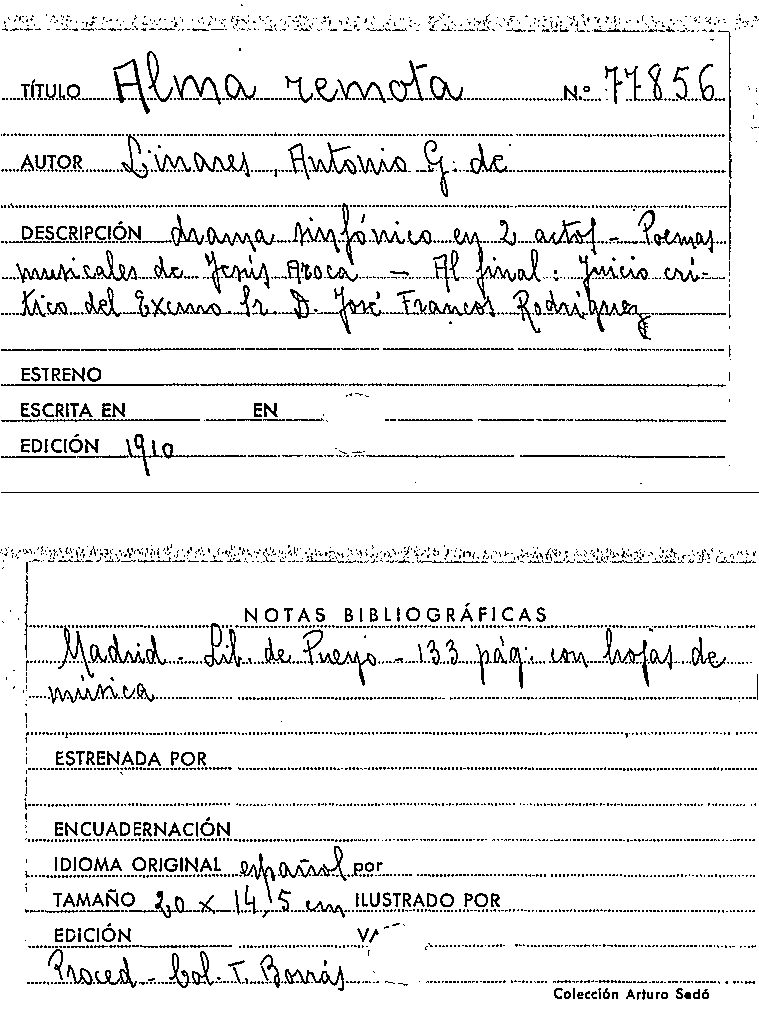 TÍTULO Alma remota N.º 77856
AUTOR Linares, Antonio G. de
DESCRIPCIÓN drama sinfónico en 2 actos - Poemas
musicales de Jesús Aroca - Al final: Juicio crí-
tico del Excmo. Sr. D. José Francos Rodríguez
ESTRENO
ESCRITA EN EN
EDICIÓN 1910
NOTAS BIBLIOGRÁFICAS
Madrid - Lib. de Pueyo - 133 pág. con hojas de
música
ESTRENADA POR
ENCUADERNACIÓN
IDIOMA ORIGINAL español por
TAMAÑO 20 x 14,5 cm ILUSTRADO POR
EDICIÓN
Proced - Col. T. Borrás
Colección Arturo Sedó